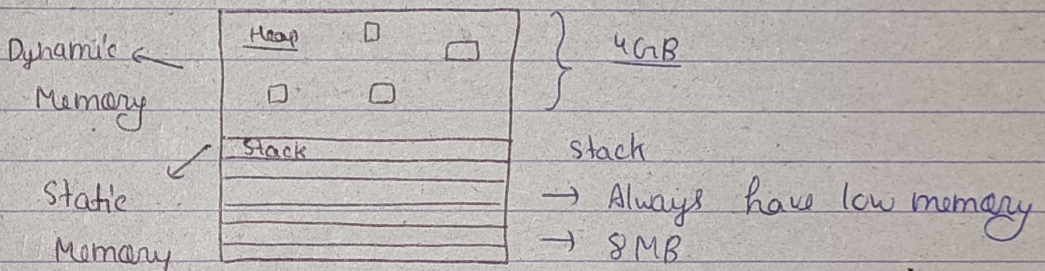 Dynamic
Memory
Heap
4GB
Stack
Static
Memory
stack
→ Always have low memory
→ 8MB